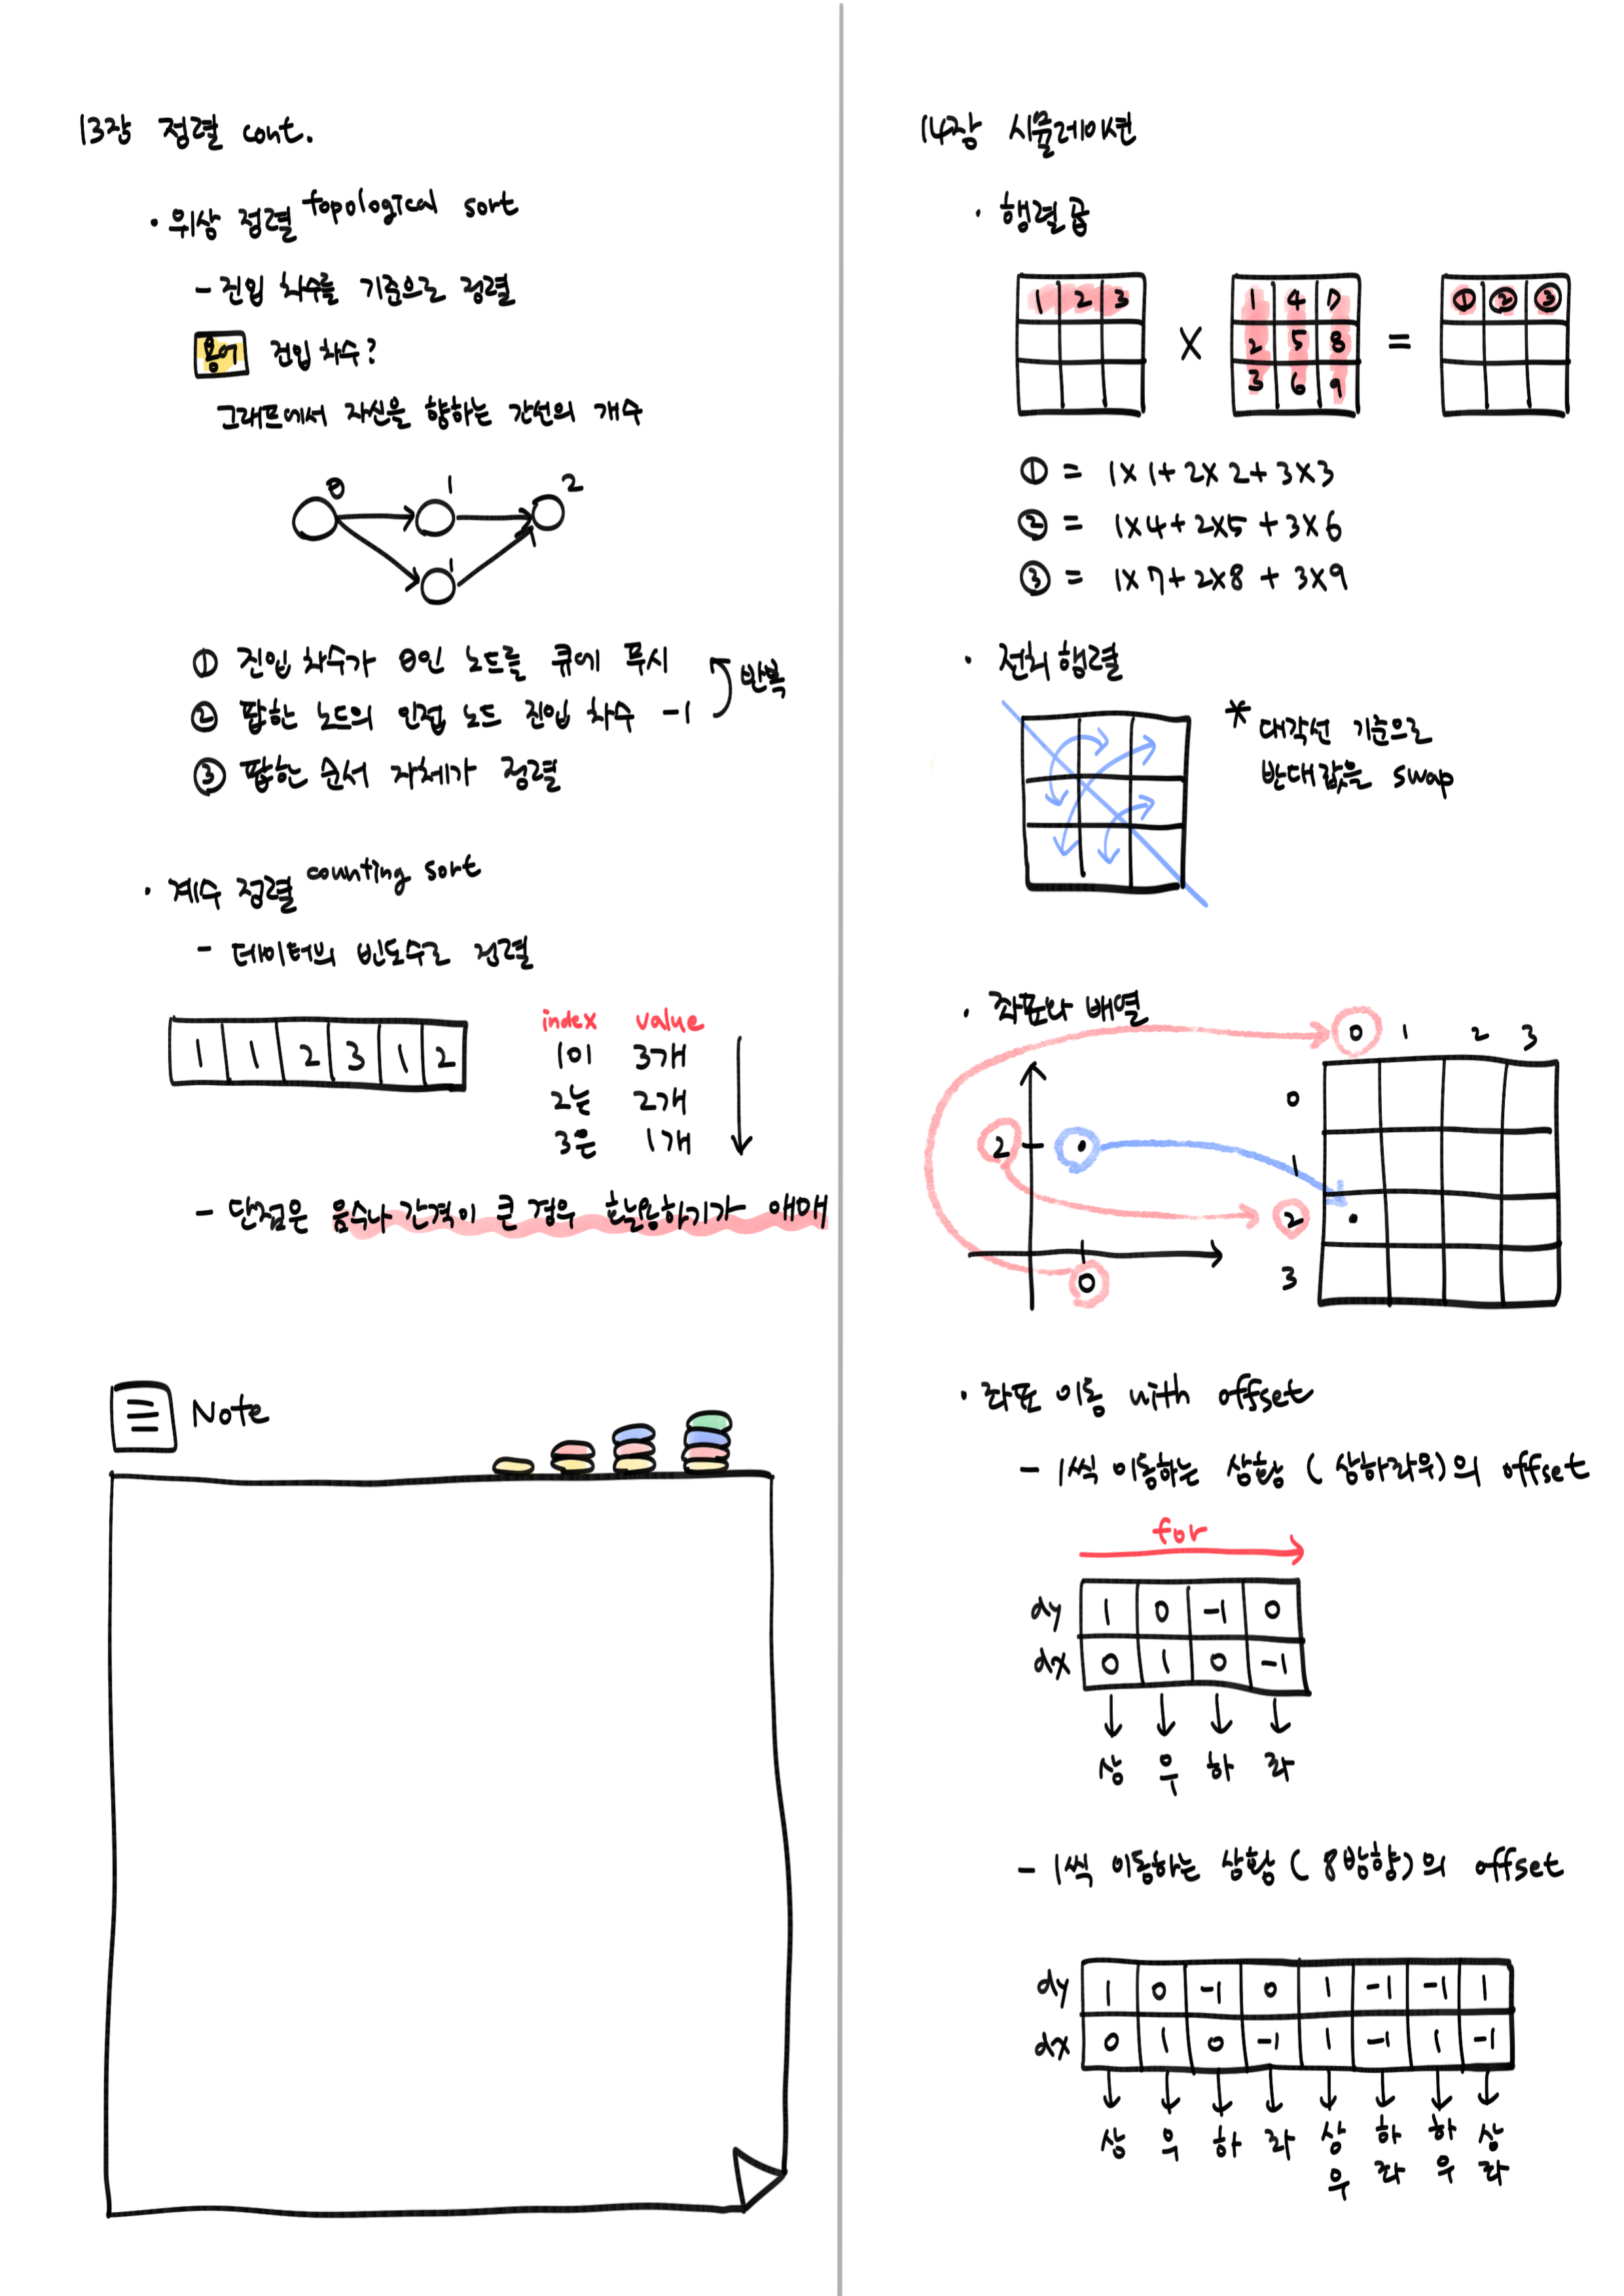 13장 정렬 cont.
· 위상 정렬 topological sort
- 진입 차수를 기준으로 정렬
용어 진입 차수?
그래프에서 자신을 향하는 간선의 개수
0 1 2
1
① 진입 차수가 0인 노드를 큐에 푸시
② 팝한 노드의 인접 노드 진입 차수 -1
반복
③ 팝한 순서 자체가 정렬
· 계수 정렬 counting sort
- 데이터의 빈도수로 정렬
1 1 2 3 1 2
index value
1이 3개
2는 2개
3은 1개
- 단점은 음수나 간격이 큰 경우 활용하기가 애매
Note
14장 시뮬레이션
· 행렬 곱
1 2 3 × 1 4 7 = ① ② ③
2 5 8
3 6 9
① = 1×1+2×2+3×3
② = 1×4+2×5+3×6
③ = 1×7+2×8+3×9
· 전치 행렬
* 대각선 기준으로
반대 값을 swap
· 좌표와 배열
0 1 2 3
0
2
1
2
0
3
· 좌표 이동 with offset
- 1씩 이동하는 상황 (상하좌우)의 offset
for
dy 1 0 -1 0
dx 0 1 0 -1
상 우 하 좌
- 1씩 이동하는 상황 (8방향)의 offset
dy 1 0 -1 0 1 -1 -1 1
dx 0 1 0 -1 1 -1 1 -1
상 우 하 좌 상 하 하 상
우 좌 우 좌